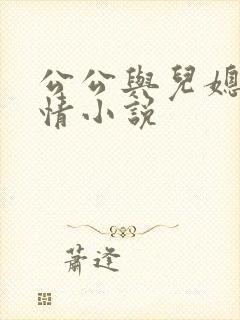 公公與兒媳
情小說
蕭逢